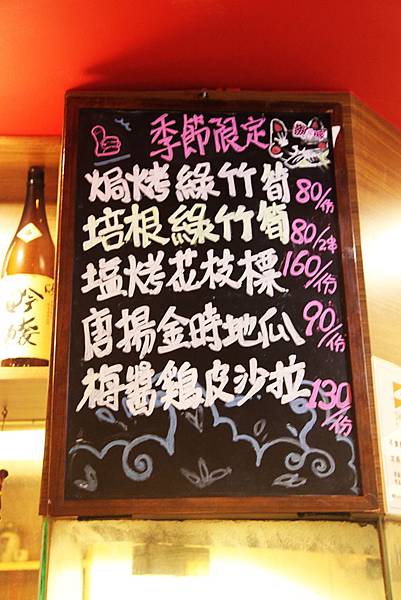 季節限定
焗烤綠竹筍 80/份
培根綠竹筍 80/2串
塩烤花枝標 160/份
唐揚金時地瓜 90/份
梅醬鶏皮沙拉 130/份
吟